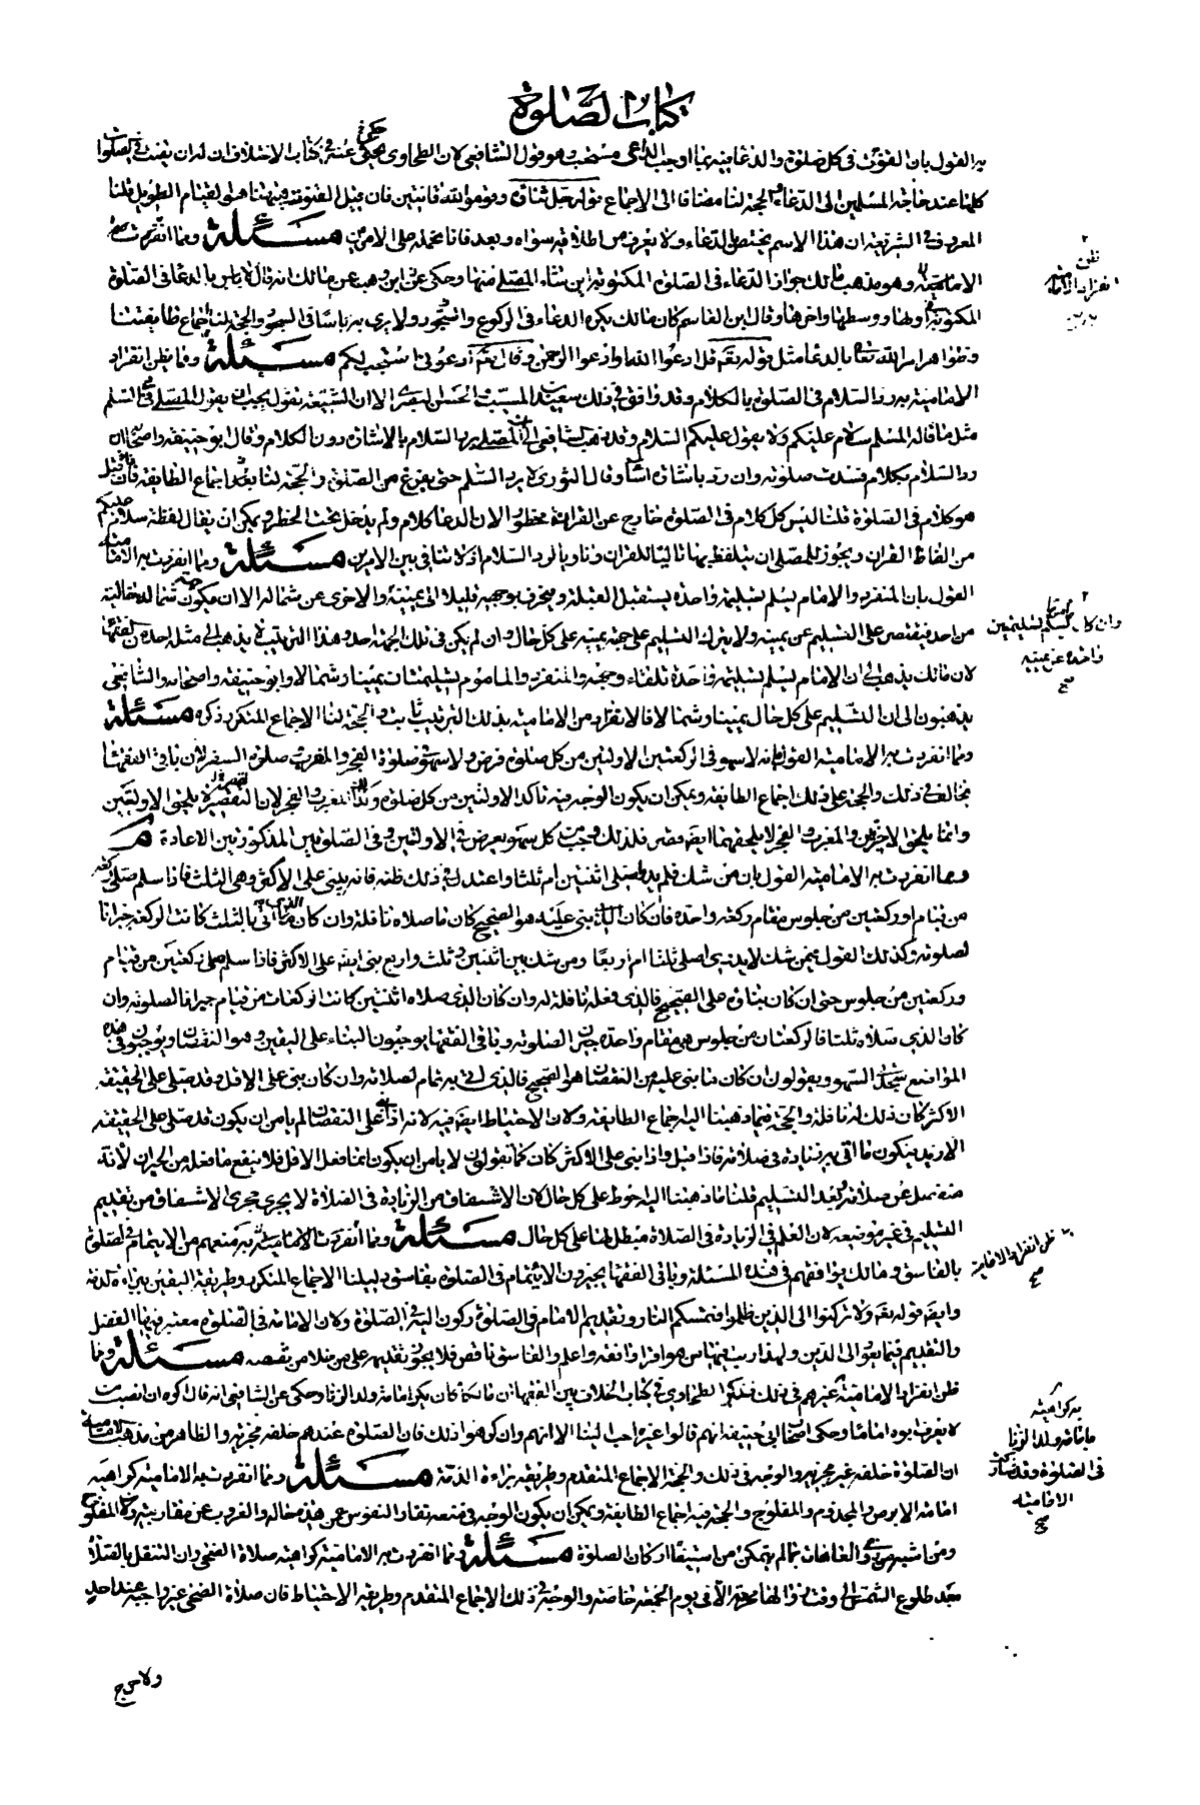 كتاب الصلوة
به القول بان القنوت فى كل صلوة والدعا فيه بما احب الداعى مستحب وهو قول الشافعى لان الطحاوى حكى عنه فى كتاب الاختلاف ان له ان يقنت فى الصلوات
كلها عند حاجة المسلمين الى الدعاء والحجة لنا مضافا الى الاجماع قوله جل ثناؤه وقوموا لله قانتين فان قيل القنوت هيهنا هو القيام الطويل قلنا
المعروف فى الشريعة ان هذا الاسم يختص الدعاء ولا يعرف من اطلاقه سواه وبعد فانا نحمله على الامرين مسئلة ومما انفردت به
الامامية وهو مذهب مالك جواز الدعاء فى الصلوة المكتوبة اين شاء المصلى منها وحكى عن ابن وهب عن مالك انه قال لا باس بالدعا فى الصلوة
المكتوبة فى اولها ووسطها واخرها وقال ابن القاسم كان مالك يكره الدعاء فى الركوع ولا يرى به باسا فى السجود والحجة لنا اجماع طايفتنا
وظواهر امر الله تعا بالدعا مثل قوله تعه قل ادعوا الله او ادعوا الرحمن وقال تعه ادعونى استجب لكم مسئلة ومما يظن انفراد
الامامية به رد السلام فى الصلوة بالكلام وقد وافق فى ذلك سعيد بن المسيب الحسن البصرى الا ان الشيعة تقول يجب ان يقول المصلى فى رد السلم
مثل ما قاله المسلم سلام عليكم ولا يقول عليكم السلام وقد ذهب الشافعى الى ان المصلى يرد السلام بالاشارة دون الكلام وقال ابو حنيفة واصحابه ان
رد السلام بكلام فسدت صلوته وان رد باشارة اساء وقال الثورى لا يرد السلم حتى يفرغ من الصلوة والحجة لنا بعد اجماع الطايفة فان قيل
هو كلام فى الصلوة قلنا ليس كل كلام فى الصلوة خارج عن القران محظور الا ان الدعا كلام ولم يدخل تحت الحظر ويمكن ان يقال لفظة سلام عليكم
من الفاظ القران ويجوز للمصلى ان يتلفظ بها تاليا للقران وناويا لرد السلام اذ لا تنافى بين الامرين مسئلة ومما انفردت به الامامية
القول بان المنفرد والامام يسلم تسليمة واحدة يستقبل القبلة وينحرف بوجهه قليلا الى يمينه والاخرى عن شماله الا ان يكون جهة شماله خالية
من احد فيقتصر على التسليم عن يمينه ولا يترك التسليم على جهة يمينه على كل حال وان لم يكن فى تلك الجهة احد وهذا الترتيب لا يذهب الى مثله احد من الفقهاء
لان مالك يذهب الى ان الامام يسلم تسليمة واحدة تلقاء وجهه والمنفرد والماموم تسليمتان يمينا وشمالا وابو حنيفة واصحابه والشافعى
يذهبون الى ان التسليم على كل حال يمينا وشمالا فالانفراد من الامامية بذلك الترتيب ثابت والحجة لنا الاجماع المتكرر ذكره مسئلة
ومما انفردت به الامامية القول بانه لا سهو فى الركعتين الاولتين من كل صلوة فرض ولا سهو فى صلوة الفجر والمغرب صلوة السفر لان باقى الفقهاء
يخالف فى ذلك والحجة على ذلك اجماع الطايفة ويمكن ان يكون الوجه فيه تاكد الاولتين من كل صلوة وكذا المغرب والفجر لان التقصير لا يلحق الاولتين
وانما يلحق الاخرتين والمغرب الفجر لا يلحقهما ايضا قصر فلذلك وجبت كل سهو يعرض فى الاولتين وفى الصلوتين المذكورتين الاعادة م
ومما انفردت به الامامية القول بان من شك فلم يدر اصلى اثنتين ام ثلثا واعتدل فى ذلك ظنه فانه يبنى على الاكثر وهى الثلث فاذا سلم صلى ركعة
من قيام او ركعتين من جلوس مقام ركعة واحدة فان كان الذى بنى عليه هو الصحيح كان ما صلاه نافلة وان كان الذى اتى بالثلث كانت الركعة جبرانا
لصلوته وكذلك القول فيمن شك لا يدرى اصلى ثلثا ام اربعا ومن شك بين اثنين وثلث واربع بنى ايضه على الاكثر فاذا سلم صلى ركعتين من قيام
وركعتين من جلوس حتى ان كان بناؤه على الصحيح فالذى فعله نافلة له وان كان الذى صلاه اثنتين كانتا الركعتان من قيام جبرانا لصلوته وان
كان الذى صلاه ثلثا فالركعتان من جلوس وهى مقام واحدة جبران الصلوته وباقى الفقها يوجبون البناء على اليقين وهو النقصان ويوجبون فى هذه
المواضع سجدتى السهو ويقولون ان كان ما بنى عليه من النقصان هو الصحيح فالذى اتى به تمام لصلاته وان كان بنى على الاقل وقد صلى على الحقيقة
الاكثر كان ذلك له نافلة والحجة فيما ذهبنا اليه اجماع الطايفة ولان الاحتياط ايضه فيه لانه اذا بنى على النقصان لم يامن ان يكون قد صلى على الحقيقة
الازيد فيكون ما اتى به زيادة فى صلاته فاذا قيل واذا بنى على الاكثر كان كما تقولون لا يامن ان يكون انما فعل الاقل فلا ينفع ما فعله من الجبران لانه
منفصل عن صلاته وبعد التسليم قلنا ما ذهبنا اليه احوط على كل حال لان الاشفاق من الزيادة فى الصلاة لا يجرى مجرى الاشفاق من تقديم
التسليم فى غير موضعه لان العلم فى الزيادة فى الصلاة مبطل لها على كل حال مسئلة ومما انفردت الامامية به منعهم من الايتمام فى الصلوة
بالفاسق ومالك يوافقهم فى هذه المسئلة وباقى الفقها يجيزون الايتمام فى الصلوة بفاسق دليلنا الاجماع المتكرر وطريقة اليقين ببراءة الذمة
وايضه قوله تعه ولا تركنوا الى الذين ظلموا فتمسكم النار وتقديم الامام فى الصلوة ركون اليه فى الصلوة ولان الامامة فى الصلوة معتبر فيها الفضل
والتقديم فيما يعود الى الدين ولهذا رتب فيها من هو اقرا وافقه واعلم والفاسق ناقص فلا يجوز تقديمه على من خلا من نقصه مسئلة ومما
ظن انفراد الامامية غيرهم فى ذلك فذكر الطحاوى فى كتاب اختلاف بين الفقها ان مالكا كان يكره امامة ولد الزنا وحكى عن الشافعى انه قال اكره ان انصب
لا يعرف ابوه اماما وحكى اصحاب ابى حنيفة انهم قالوا غيره احب الينا الا انهم وان كرهوا ذلك فان الصلوة عندهم خلفه مجزية والظاهر من مذهب الامامية
ان الصلوة خلفه غير مجزيه والوجه فى ذلك والحجة الاجماع المتقدم وطريقة براءة الذمة مسئلة ومما انفردت به الامامية كراهية
امامة الابرص والمجذوم والمفلوج والحجة فيه اجماع الطايفة ويمكن ان يكون الوجه فى منعه نفار النفوس عمن هذه حاله والعزوف عن مقاربته ولان المفلوج
ومن اشبهه من ذوى العاهات ربما لم يتمكن من استيفاء اركان الصلوة مسئلة ومما انفردت به الامامية كراهية صلاة الضحى وان التنفل بالصلاة
بعد طلوع الشمس الى وقت زوالها محرمة الا فى يوم الجمعة خاصة والوجه فى ذلك الاجماع المتقدم وطريقة الاحتياط فان صلاة الضحى غير واجبة عند احد
انفراد الامامية
وان كان يسلم تسليمتين
واحدة عن يمينه
صح
ظن انفراد الامامية
صح
به كراهية
امامة ولد الزنا
فى الصلوة وقد شارك
الامامية
صح
ولا حرج